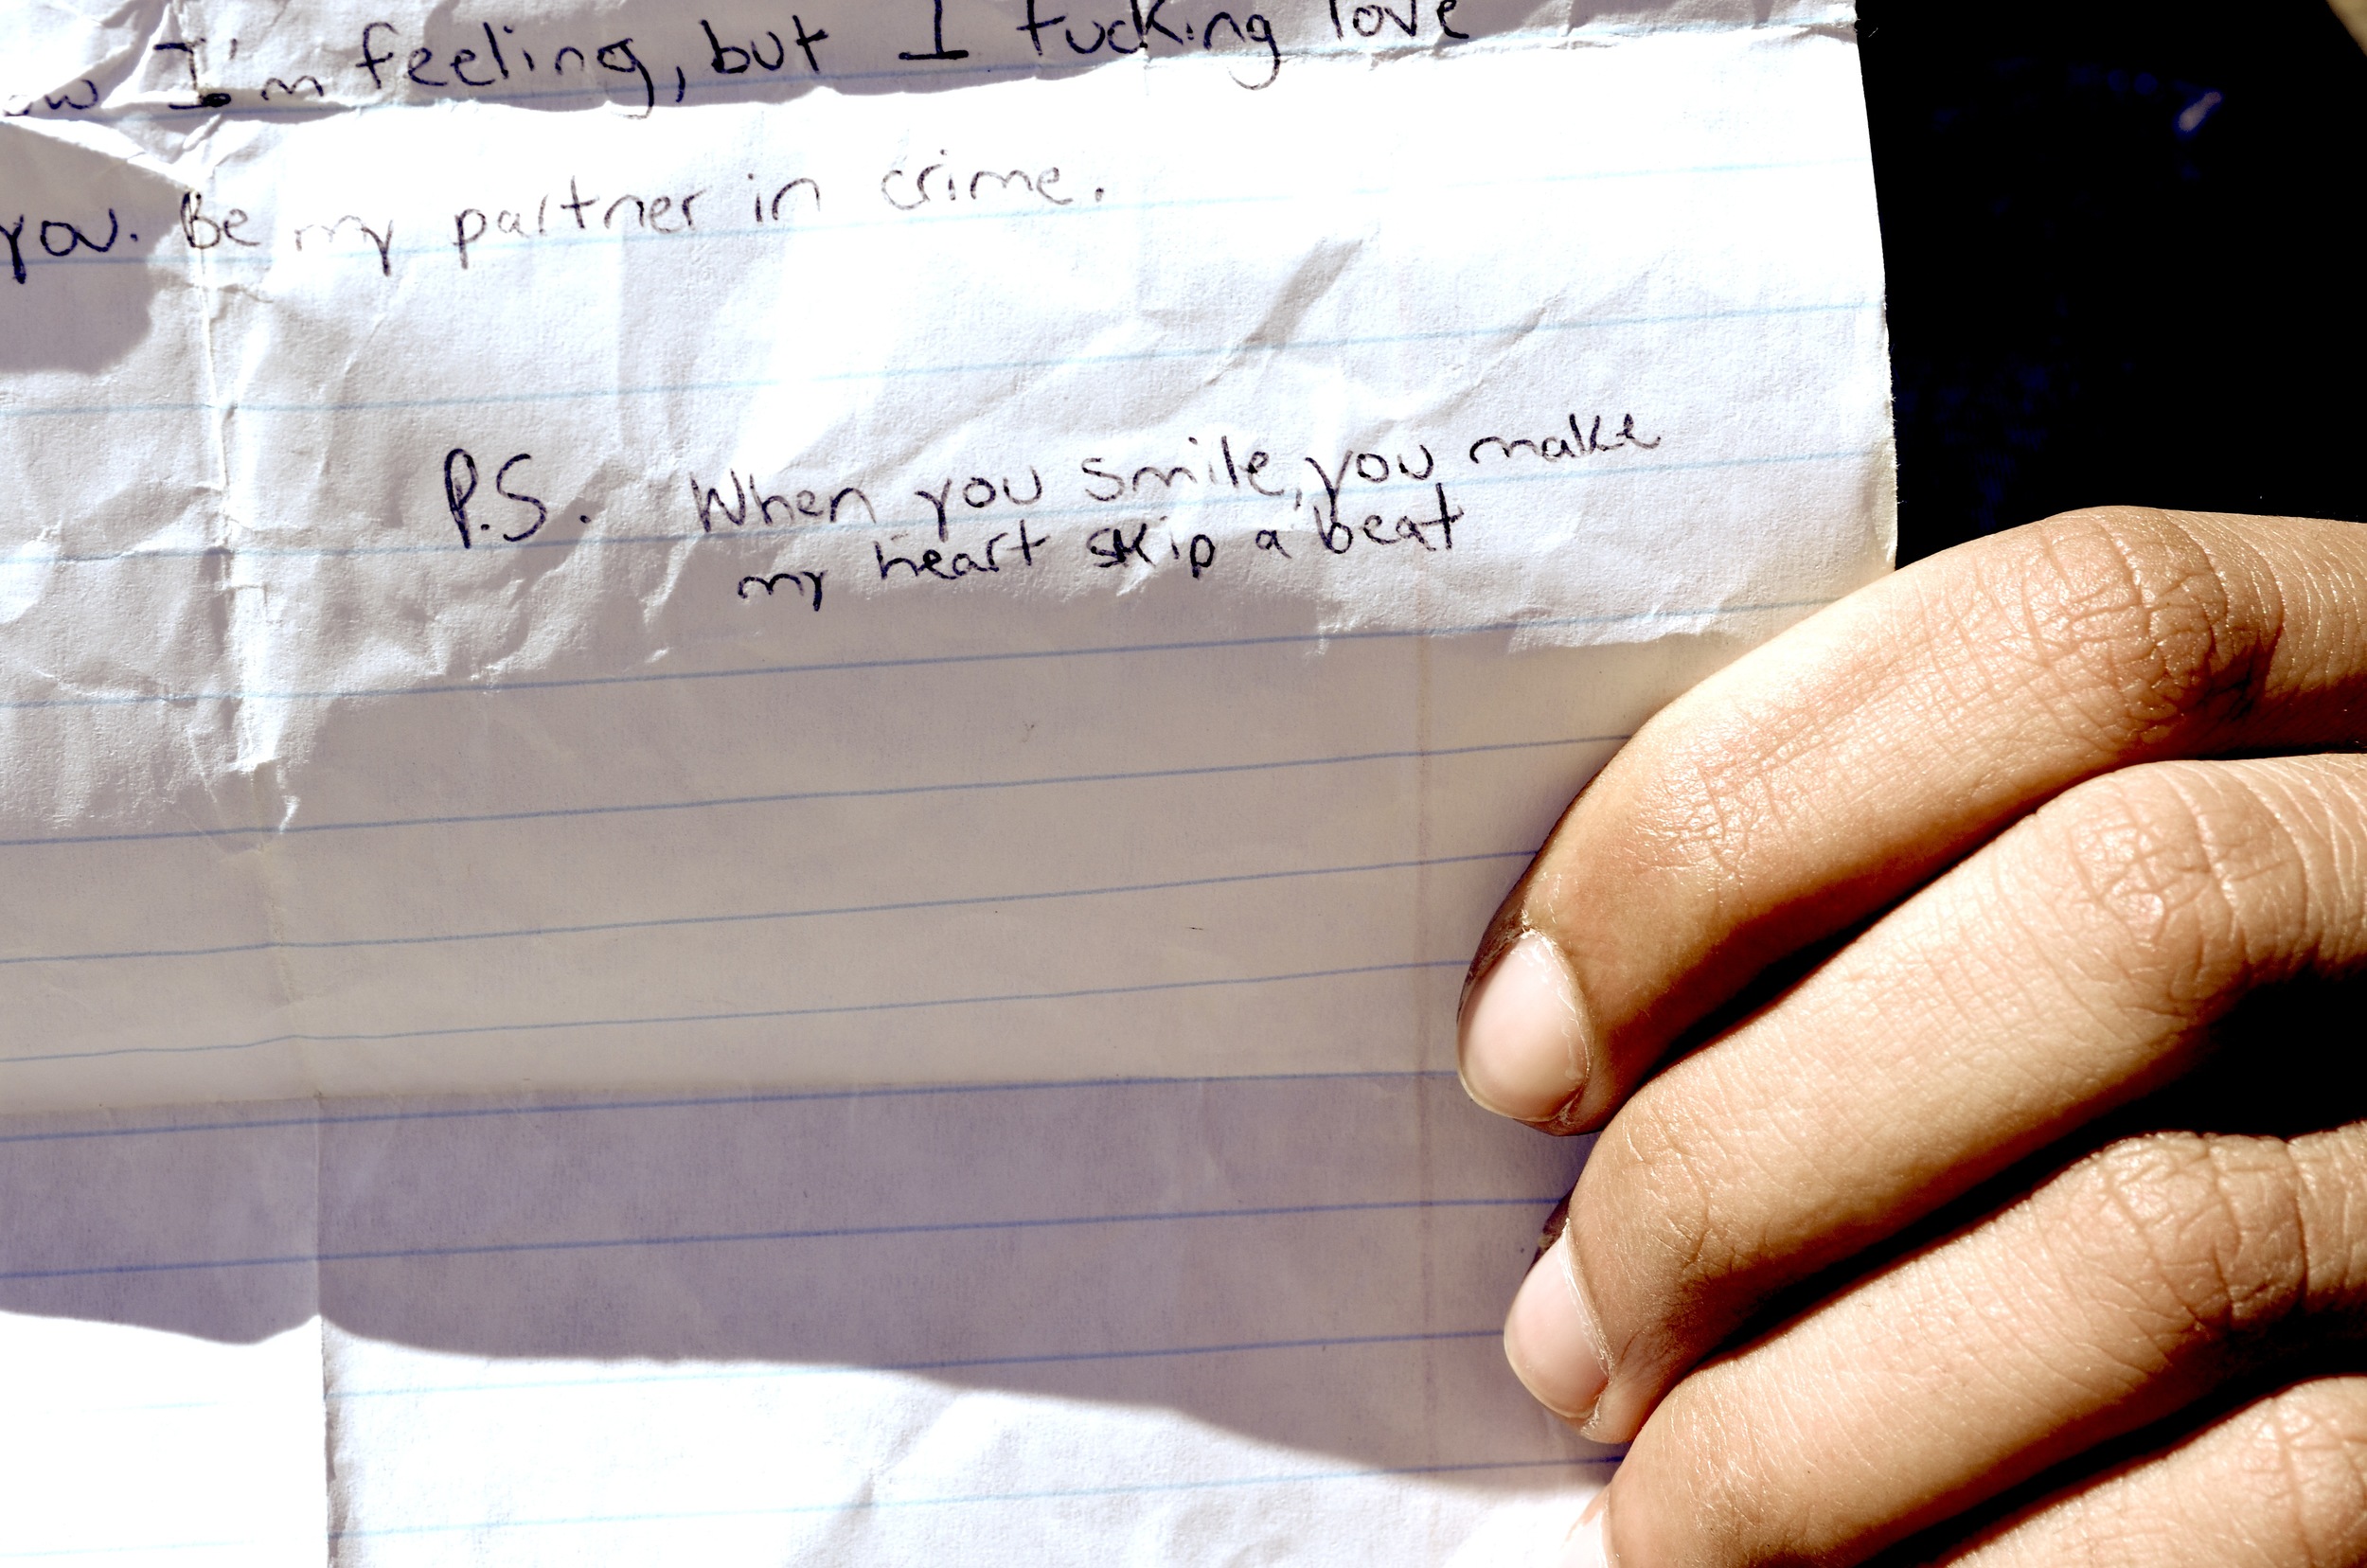 I'm feeling, but I fucking love
you. Be my partner in crime.
P.S. When you smile, you make
my heart skip a beat